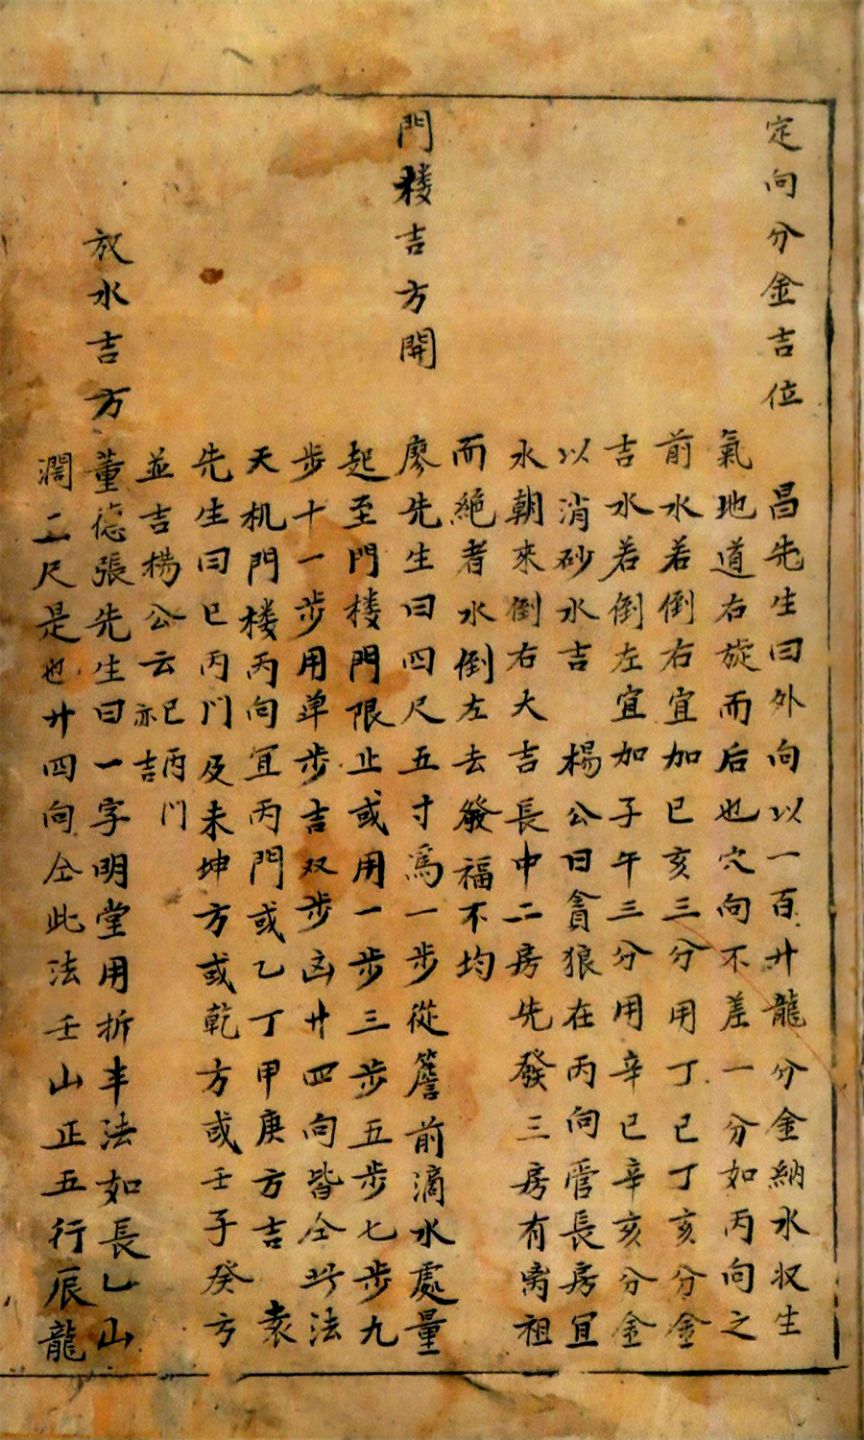 定向分金吉位 昌先生曰外向以一百廿龍分金納水収生
氣地道右旋而后也穴向不差一分如丙向之
前水若倒右宜加巳亥三分用丁巳丁亥分金
吉水若倒左宜加子午三分用辛巳辛亥分金
以消砂水吉 楊公曰貪狼在丙向管長房宜
水朝來倒右大吉長中二房先發三房有离祖
而絶者水倒左去發福不均
門楼吉方開 廖先生曰四尺五寸爲一步從簷前滴水處量
起至門楼門限止或用一步三步五步七步九
步十一步用单步吉双步凶廿四向皆仝此法
天机門楼丙向宜丙門或乙丁甲庚方吉 袁
先生曰巳丙门及未坤方或乾方或壬子癸方
並吉楊公云巳丙门亦吉
放水吉方 董德張先生曰一字明堂用折半法如長乙山
濶二尺是也廿四向仝此法壬山正五行辰龍